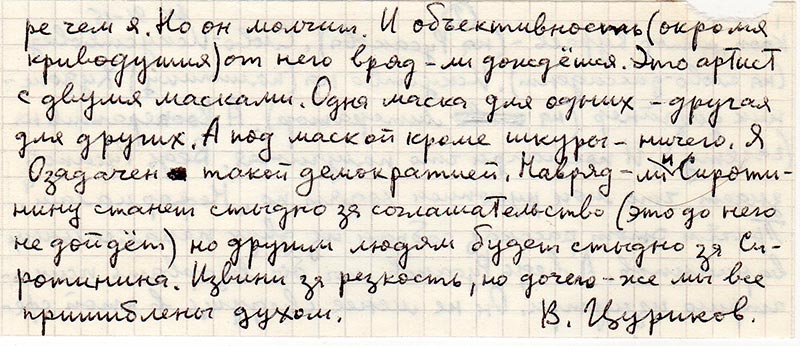 ре чем я. Но он молчит. И объективность (окромя
криводушия) от него вряд-ли дождёшся. Это артист
с двумя масками. Одна маска для одних - другая
для других. А под маской кроме шкуры - ничего. Я
Озадачен такой демократией. Навряд-ли и Сироти-
нину станет стыдно за соглашательство (это до него
не дойдёт) но другим людям будет стыдно за Си-
ротинина. Извини за резкость, но дочего-же мы все
пришиблены духом. В. Цуриков.